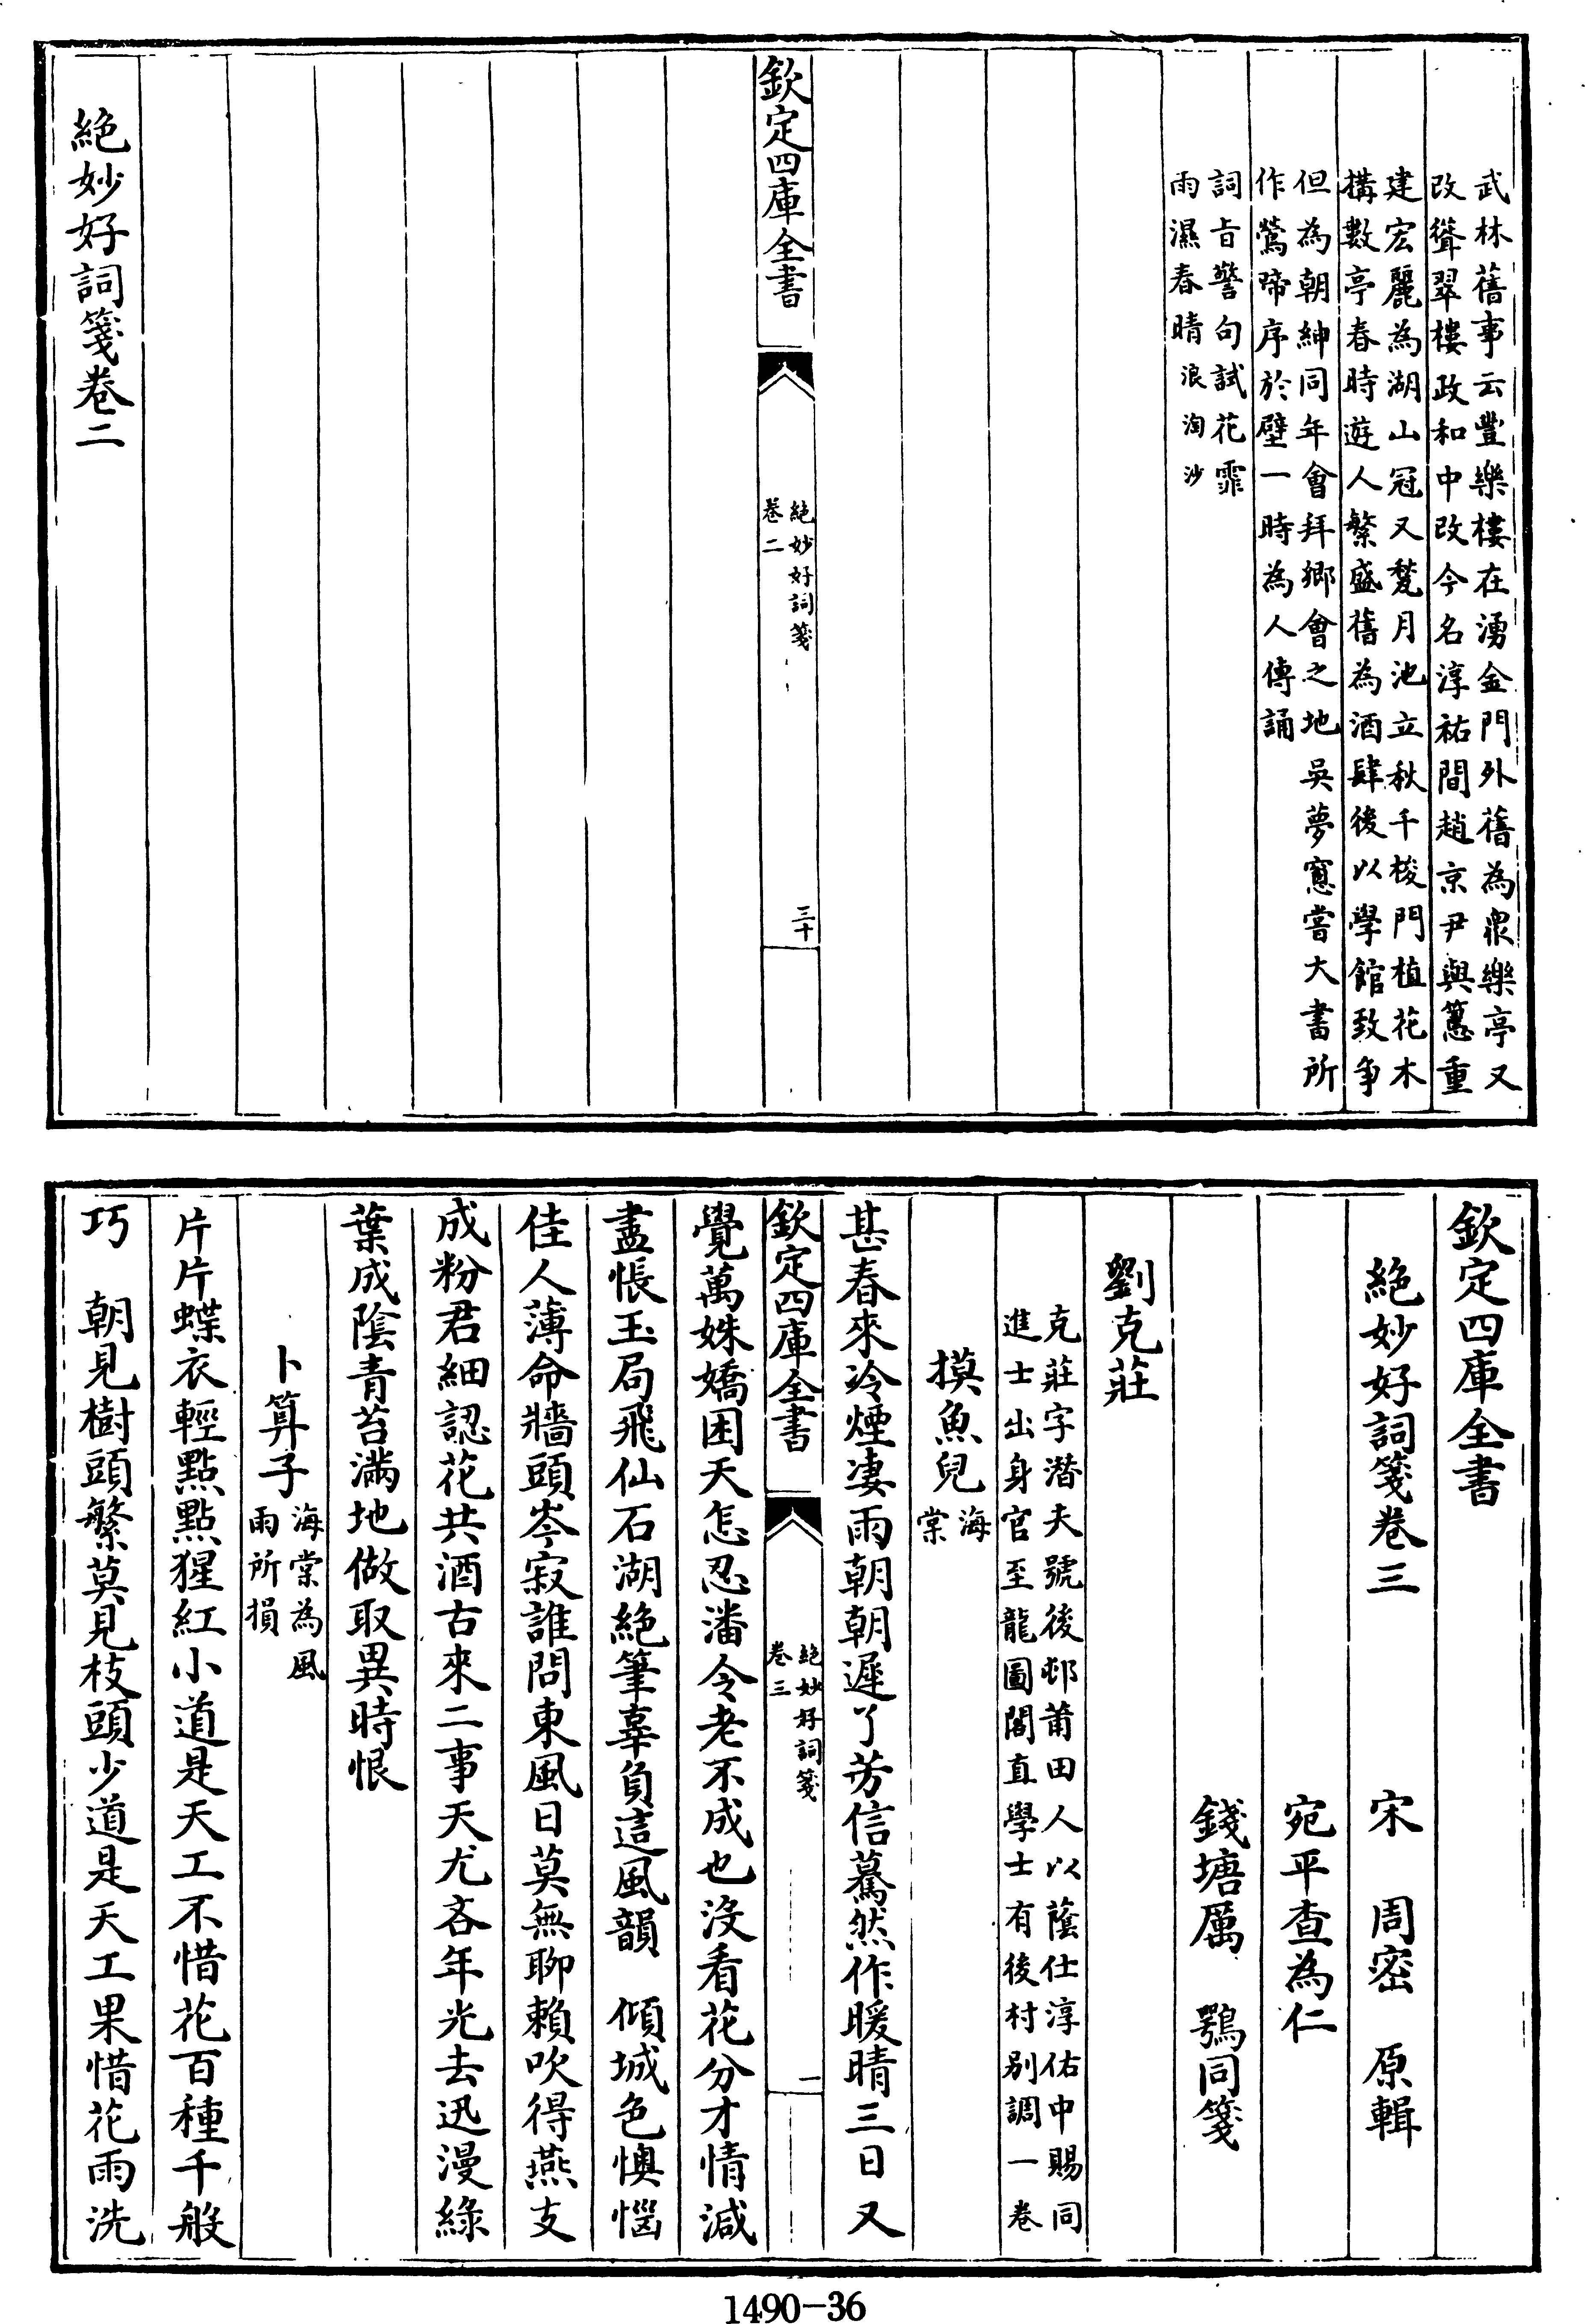 武林舊事云豐樂樓在湧金門外舊為衆樂亭又
改聳翠樓政和中改今名淳祐間趙京尹與𥲤重
建宏麗為湖山冠又甃月池立秋千梭門植花木
搆數亭春時遊人繁盛舊為酒肆後以學館致争
但為朝紳同年會拜鄉會之地吳夢窻嘗大書所
作鶯啼序於壁一時為人傳誦
詞旨警句試花霏
雨濕春晴浪淘沙
欽定四庫全書
絕妙好詞箋
卷二
三十
絕妙好詞箋卷二
欽定四庫全書
絕妙好詞箋卷三
宋 周密 原輯
宛平查為仁
錢塘厲 鶚同箋
劉克莊
克莊字潛夫號後邨莆田人以蔭仕淳佑中賜同
進士出身官至龍圖閣直學士有後村別調一卷
摸魚兒海
棠
甚春來冷煙凄雨朝朝遲了芳信驀然作暖晴三日又
覺萬姝嬌困天怎忍潘令老不成也沒看花分才情減
欽定四庫全書
絕妙好詞箋
卷三
一
盡悵玉局飛仙石湖絕筆辜負這風韻 傾城色懊惱
佳人薄命牆頭岑寂誰問東風日莫無聊賴吹得燕支
成粉君細認花共酒古來二事天尤吝年光去迅漫綠
葉成陰青苔滿地做取異時恨
卜算子海棠為風
雨所損
片片蝶衣輕點點猩紅小道是天工不惜花百種千般
巧 朝見樹頭繁莫見枝頭少道是天工果惜花雨洗
1490-36